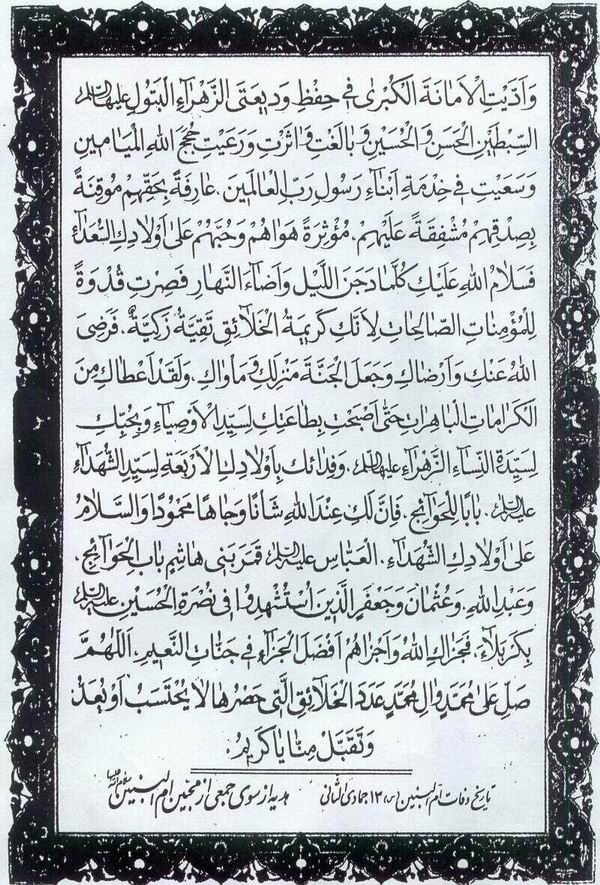 وَاَدَّيْتِ الْاَمَانَةَ الْكُبْرىٰ فِي حِفْظِ وَدِيعَتَيِ الزَّهْرَاءِ الْبَتُولِ عليها السلام
السِّبْطَيْنِ الْحَسَنِ وَالْحُسَيْنِ وَبَالَغْتِ وَاٰثَرْتِ وَرَعَيْتِ حُجَجَ اللهِ الْمَيَامِينَ
وَسَعَيْتِ فِي خِدْمَةِ اَبْنَاءِ رَسُولِ رَبِّ الْعَالَمِينَ، عَارِفَةً بِحَقِّهِمْ مُوقِنَةً
بِصِدْقِهِمْ مُشْفِقَةً عَلَيْهِمْ، مُؤْثِرَةً هَوَاهُمْ وَحُبَّهُمْ عَلىٰ اَوْلَادِكِ السُّعَدَاءِ
فَسَلَامُ اللهِ عَلَيْكِ كُلَّمَا دَجَنَ اللَّيْلُ وَاَضَاءَ النَّهَارُ فَصِرْتِ قُدْوَةً
لِلْمُؤْمِنَاتِ الصَّالِحَاتِ لِاَنَّكِ كَرِيمَةُ الْخَلَائِقِ تَقِيَّةٌ زَكِيَّةٌ، فَرَضِيَ
اللهُ عَنْكِ وَاَرْضَاكِ وَجَعَلَ الْجَنَّةَ مَنْزِلَكِ وَمَأْوَاكِ، وَلَقَدْ اَعْطَاكِ مِنَ
الْكَرَامَاتِ الْبَاهِرَاتِ حَتّىٰ اَصْبَحْتِ بِطَاعَتِكِ لِسَيِّدِ الْاَوْصِيَاءِ وَبِحُبِّكِ
لِسَيِّدَةِ النِّسَاءِ الزَّهْرَاءِ عليها السلام، وَفِدَائِكِ بِاَوْلَادِكِ الْاَرْبَعَةِ لِسَيِّدِ الشُّهَدَاءِ
عليه السلام، بَابًا لِلْحَوَائِجِ، فَاِنَّ لَكِ عِنْدَ اللهِ شَانًا وَجَاهًا مَحْمُودًا وَالسَّلَامُ
عَلىٰ اَوْلَادِكِ الشُّهَدَاءِ، الْعَبَّاسِ عليه السلام قَمَرِ بَنِي هَاشِمٍ بَابِ الْحَوَائِجِ،
وَعَبْدِ اللهِ، وَعُثْمَانَ وَجَعْفَرٍ الَّذِينَ اسْتُشْهِدُوا فِي نُصْرَةِ الْحُسَيْنِ عليه السلام
بِكَرْبَلَاءَ، فَجَزَاكِ اللهُ وَاَجْزَاهُمْ اَفْضَلَ الْجَزَاءِ فِي جَنَّاتِ النَّعِيمِ، اَللّٰهُمَّ
صَلِّ عَلىٰ مُحَمَّدٍ وَاٰلِ مُحَمَّدٍ عَدَدَ الْخَلَائِقِ الَّتِي حَصْرُهَا لَا يُحْتَسَبُ اَوْ يُعَدُّ،
وَتَقَبَّلْ مِنَّا يَا كَرِيمُ.
تاریخ وفات ام البنین (س) ۱۳ جمادی الثانی
هدیه از سوی جمعی از محبین ام البنین سلام الله علیها